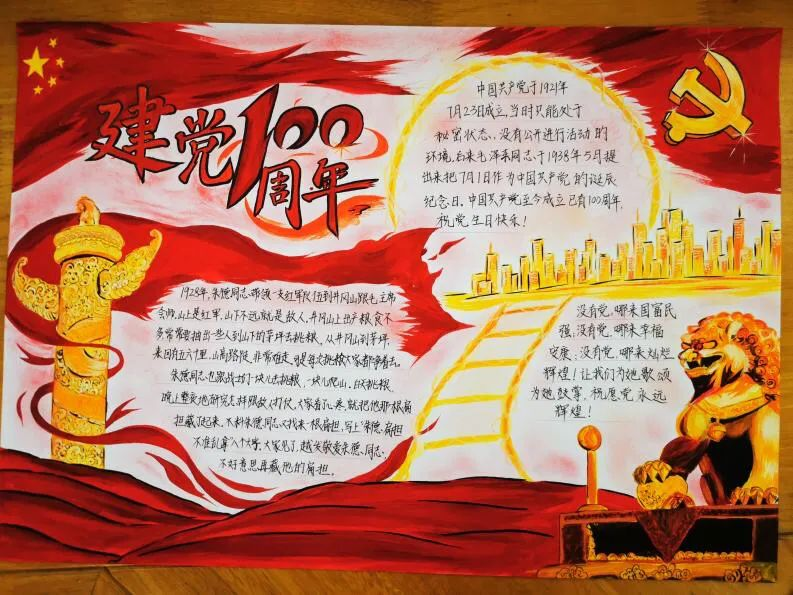 建党100
周年
中国共产党于1921年
7月23日成立,当时只能处于
秘密状态、没有公开进行活动的
环境,后来毛泽东同志于1938年5月提
出来把7月1日作为中国共产党的诞辰
纪念日。中国共产党至今成立已有100周年,
祝党生日快乐!
1928年,朱德同志带领一支红军队伍到井冈山跟毛主席
会师,山上是红军,山下不远就是敌人,井冈山上出产粮食不
多常常要抽出一些人到山下的茅坪去挑粮,从井冈山到茅坪,
来回有五六十里,山高路陡,非常难走,可是每次挑粮大家都争着去。
朱德同志也跟战士们一块儿去挑粮,一块儿爬山,白天挑粮,
晚上整夜地研究怎样跟敌人打仗,大家看了心疼,就把他那根扁
担藏了起来,不料朱德同志又找来一根扁担,写上“朱德扁担
不准乱拿”八个大字。大家见了,越发敬爱朱德同志,
不好意思再藏他的扁担。
没有党,哪来国富民
强,没有党,哪来幸福
安康,没有党,哪来灿烂
辉煌!让我们为她歌颂
为她鼓掌,祝愿党永远
辉煌!